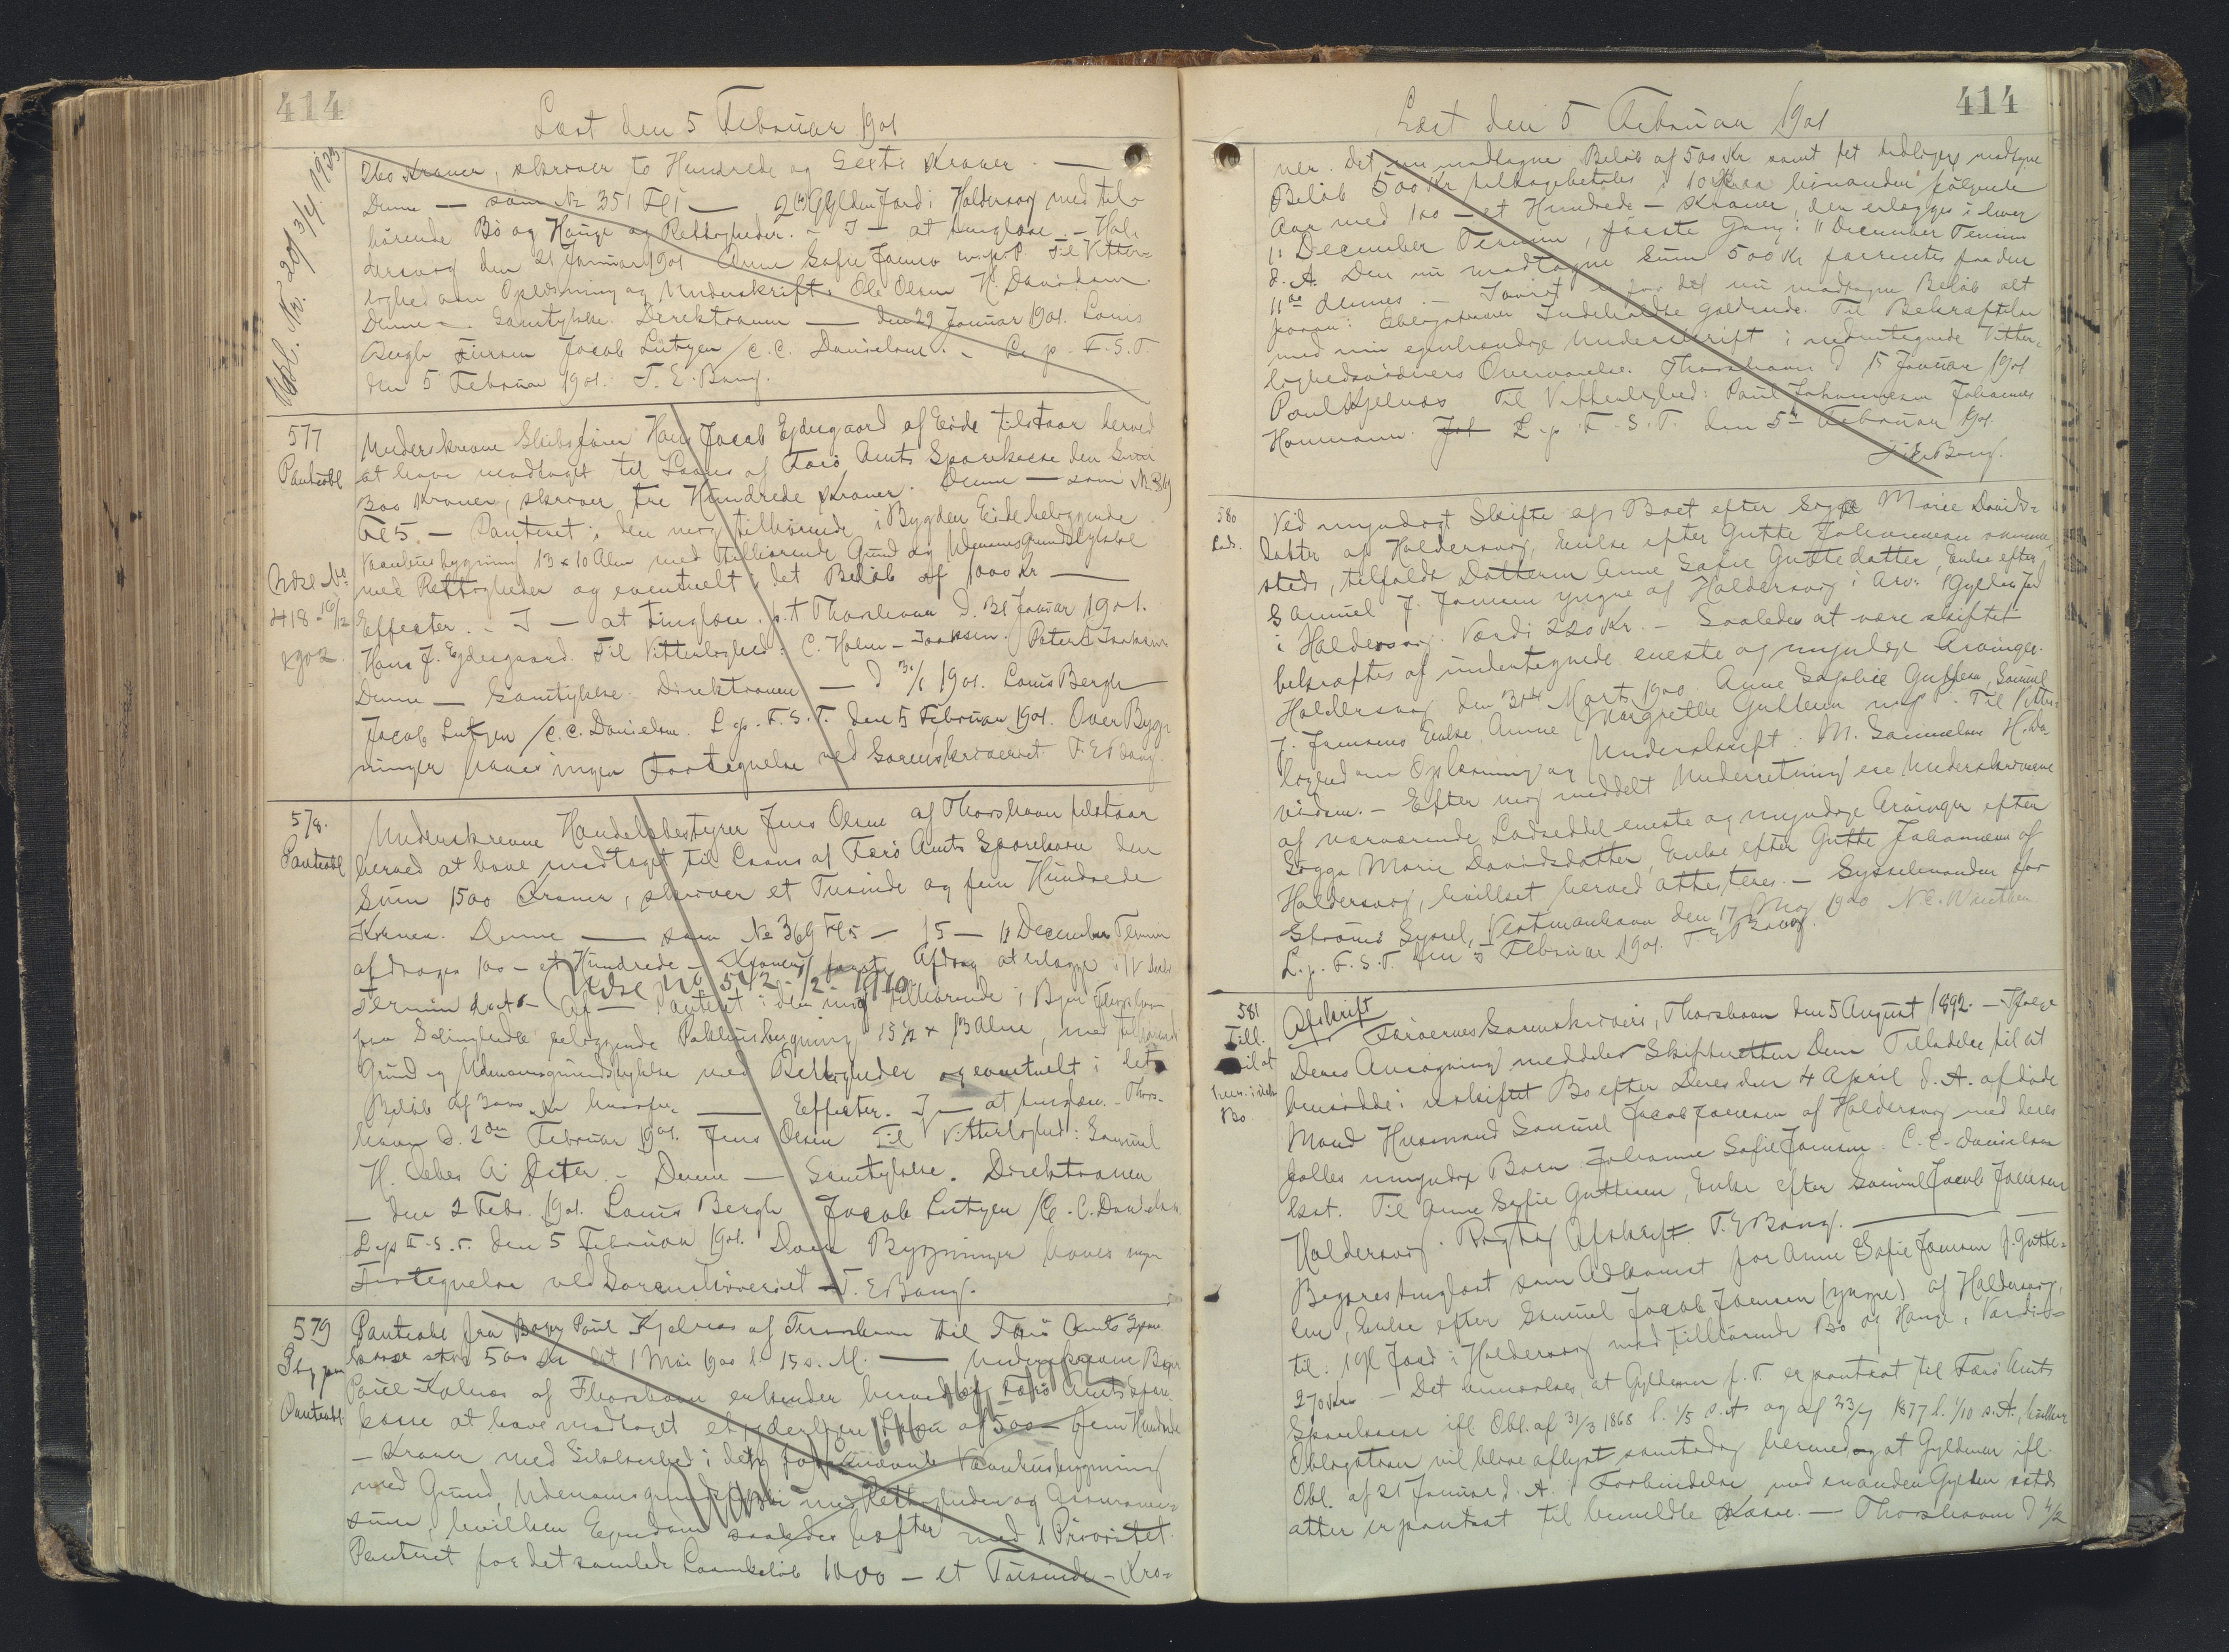 414
Læst den 5 Februar 1901
Udsl. No. 201 3/4 1923
260 Kroner, skriver to Hundrede og Sexti Kroner. —
Denne — som No 351 Fl 1 — 2 Gylden Jord i Haldersvig med til-
hørende Bø og Hauge og Rettigheder. - I — at tinglæse. - Hal-
dersvig den 21 Januar 1901 Anne Sofie Joensen m.f.P. Til Vitter-
lighed om Oplæsning og Underskrift: Ole Olsen H. Davidsen.
Denne — Samtykke. Direktionen — den 29 Januar 1901. Louis
Bergh Jacob Lützen / C. C. Danielsen. - L. p. F. S. T.
den 5 Februar 1901. T. E. Bang.
577
Panteobl
Udsl No
418 - 16/12
1902
Underskrevne Skibsfører Hans Jacob Ejdesgaard af Eide tilstaar herved
at have modtaget til Laans af Færø Amts Sparekasse den Sum
300 Kroner, skriver tre Hundrede Kroner. Denne — som No 369
Fl 5 - Panteret i den mig tilhørende i Bygden Eide beliggende
Vaaningsbygning 13 x 10 Alen med tilhørende Grund og Udenomsgrundstykke
med Rettigheder og eventuelt i det Beløb af 1000 Kr —
Effecter. - I — at tinglæse. p.t. Thorshavn d. 31 Januar 1901.
Hans J. Ejdesgaard. Til Vitterlighed: C. Holm - Isaksen. Peter Isaksen
Denne — Samtykke. Direktionen — d 31/1 1901. Louis Bergh
Jacob Lützen / C. C. Danielsen. L. p. F. S. T. den 5 Februar 1901. Over Byg-
ninger haves ingen Fortegnelse ved Sorenskriveriet T. E. Bang.
578.
Panteobl
Underskrevne Handelsbestyrer Jens Olsen af Thorshavn tilstaar
herved at have modtaget til Laans af Færø Amts Sparekasse den
Sum 1500 Kroner, skriver et Tusinde og fem Hundrede
Kroner. Denne — som No 369 Fl 5 — 15 — 11 December Termin
afdrages 100 - et Hundrede - Kroner, første Afdrag at erlægge i 11 Decbr
Termin d. A. - Af — Panteret i den mig tilhørende i Byen Thorshavn
Udsl No 542 - /12 - 1910
beliggende Pakhusbygning 15 1/2 x 13 Alen, med tilhørende
Grund og Udenomsgrundstykke med Rettigheder og eventuelt i det
Beløb af 3000 Kr hvorfor — Effecter. I — at tinglæse. - Thors-
havn d. 2den Februar 1901. Jens Olsen Til Vitterlighed: Samuel
H. Debes A. Øster. - Denne — Samtykke. Direktionen
— den 2 Febr. 1901. Louis Bergh Jacob Lützen / C. C. Danielsen
L. p. F. S. T. den 5 Februar 1901. Over Bygninger haves ingen
Fortegnelse ved Sorenskriveriet T. E. Bang.
579
Panteobl.
Panteobl fra Poul Kjelnæs af Thorshavn til Færø Amts Spare-
kasse stor 500 Kr dat 1 Mai 1900 l. 15 s. M. — Underskrevne
Poul Kjelnæs af Thorshavn erkender herved af Færø Amts Spare-
kasse at have modtaget et yderligere Laan af 500 - fem Hundrede
- Kroner med Sikkerhed i den Vaaningsbygning
med Grund, Udenomsgrundstykke med Rettigheder og Assurance-
sum, hvilken Ejendom saaledes hæfter med 1 Prioritet
Panteret for det samlede Laanebeløb 1000 — et Tusinde - Kro-
414
Læst den 5 Februar 1901
ner. Det nu modtagne Beløb af 500 Kr samt det tidligere modtagne
Beløb 500 Kr tilbagebetales i 10 paa hinanden følgende
Aar med 100 - et Hundrede - Kroner, der erlægges i hver
11 December Termin, første Gang i 11 December Termin
d. A. Den nu modtagne Sum 500 Kr forrentes fra den
11te dennes. - Iøvrigt er for det nu modtagne Beløb alt
foran: Obligationens Indehold gældende. Til Bekræftelse
med min egenhændige Underskrift i undertegnede Vitter-
lighedsvidners Overværelse. Thorshavn d 15 Januar 1901
Poul Kjelnæs Til Vitterlighed: Poul Johannesen Johannes
Hanmann. L. p. F. S. T. den 5te Februar 1901.
T. E. Bang.
580
Lods.
Ved myndigt Skifte af Boet efter Sigga Marie Davids-
datter af Haldersvig, Enke efter Gutte Johannesen samme-
steds, tilfaldt Datteren Anne Sofie Guttedatter, Enke efter
Samuel J. Joensen yngre af Haldersvig i Arv: 1 Gylden Jord
i Haldersvig. Værdi 220 Kr. - Saaledes at være skiftet
bekræftes af undertegnede eneste og myndige Arvinger.
Haldersvig den 31te Marts 1900. Anne Sophie Guttesen, Samuel
J. Joensens Enke Anne Margrethe Guttesen m.f.P. Til Vitter-
lighed om Oplæsning og Underskrift: M. Samuelsen H. Da-
vidsen. - Efter mig meddelt Underretning ere Underskriverne
af nærværende Lodseddel eneste og myndige Arvinger efter
Sigga Marie Davidsdatter, Enke efter Gutte Johannesen af
Haldersvig, hvilket herved attesteres. - Sysselmanden for
Strømø Syssel, Vestmanhavn den 17 Maj 1900 N. C. Winther
L. p. F. S. T. den 5 Februar 1901. T. E. Bang.
581
Till.
til at
hens. i uskt.
Bo
Afskrift
Færøernes Sorenskriveri, Thorshavn den 5 August 1892. - Ifølge
Deres Ansøgning meddeler Skifteretten Dem Tilladelse til at
hensidde i uskiftet Bo efter Deres den 4 April d. A. afdøde
Mand Husmand Samuel Jacob Joensen af Haldersvig med deres
fælles umyndige Barn Johanne Sofie Joensen. C. C. Danielsen
kst. Til Anne Sofie Guttesen, Enke efter Samuel Jacob Joensen
Haldersvig. Rigtig Afskrift T. E. Bang. —
Begæres tinglæst som Adkomst for Anne Sofie Joensen f. Gutte-
sen, Enke efter Samuel Jacob Joensen (yngre) af Haldersvig,
til: 1 Gl Jord i Haldersvig med tilhørende Bø og Hauge, Værdi =
270 Kr. — Det bemærkes, at Gyldenen f. T. er pantsat til Færø Amts
Sparekasse ifl. Obl. af 31/3 1868 l. 1/5 s. A. og af 23/7 1877 l. 1/10 s. A., hvilken
Obligation vil blive aflyst samtidig hermed og at Gyldenen ifl.
Obl. af 21 Januar d. A. i Forbindelse med en anden Gylden
atter er pantsat til bemeldte Kasse. — Thorshavn d 4/2